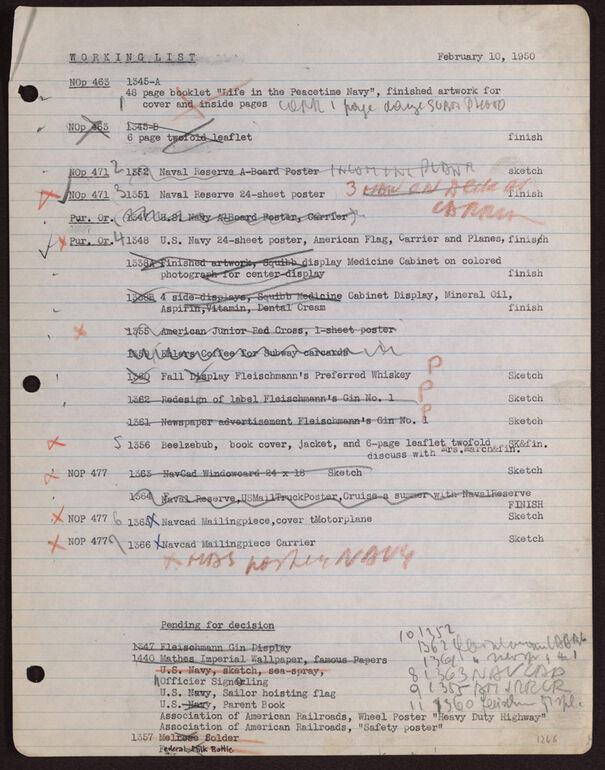 WORKING LIST February 10, 1950
NOp 463 1345-A
48 page booklet "Life in the Peacetime Navy", finished artwork for
cover and inside pages
NOp 463 1345-B
6 page twofold leaflet finish
NOp 471 2 1352 Naval Reserve A-Board Poster sketch
NOp 471 3 1351 Naval Reserve 24-sheet poster 3 finish
Pur. Or. U.S. Navy A-Board Poster, Carrier
Pur. Or. 4 1348 U.S. Navy 24-sheet poster, American Flag, Carrier and Planes, finish
1338A Finished artwork, Squibb display Medicine Cabinet on colored
photograph for center display finish
1338B 4 side-displays, Squibb Medicine Cabinet Display, Mineral Oil,
Aspirin,Vitamin, Dental Cream finish
1355 American Junior Red Cross, 1-sheet poster
Ehlers Coffee for Subway carcards
1360 Fall Display Fleischmann's Preferred Whiskey P Sketch
1362 Redesign of label Fleischmann's Gin No. 1 P Sketch
1361 Newspaper advertisement Fleischmann's Gin No. 1 P Sketch
5 1356 Beelzebub, book cover, jacket, and 6-page leaflet twofold SK&fin.
discuss with Mrs.March&fin.
NOP 477 1363 NavCad Windowcard 24 x 18 Sketch Sketch
1364 Naval Reserve,USMailTruckPoster,Cruise a summer with NavalReserve
FINISH
NOP 477 6 1365 Navcad Mailingpiece,cover tMotorplane Sketch
NOP 477 1366 Navcad Mailingpiece Carrier Sketch
poster NAVY
Pending for decision
1347 Fleischmann Gin Display
1440 Mathes Imperial Wallpaper, famous Papers
U.S. Navy, sketch, sea-spray,
Officier Signaling
U.S. Navy, Sailor hoisting flag
U.S. Navy, Parent Book
Association of American Railroads, Wheel Poster "Heavy Duty Highway"
Association of American Railroads, "Safety poster"
1357 Melrose Solder
Federal Milk Bottle
10 1352
1362
8 1363 NAVCAD
9 1355
11 1360